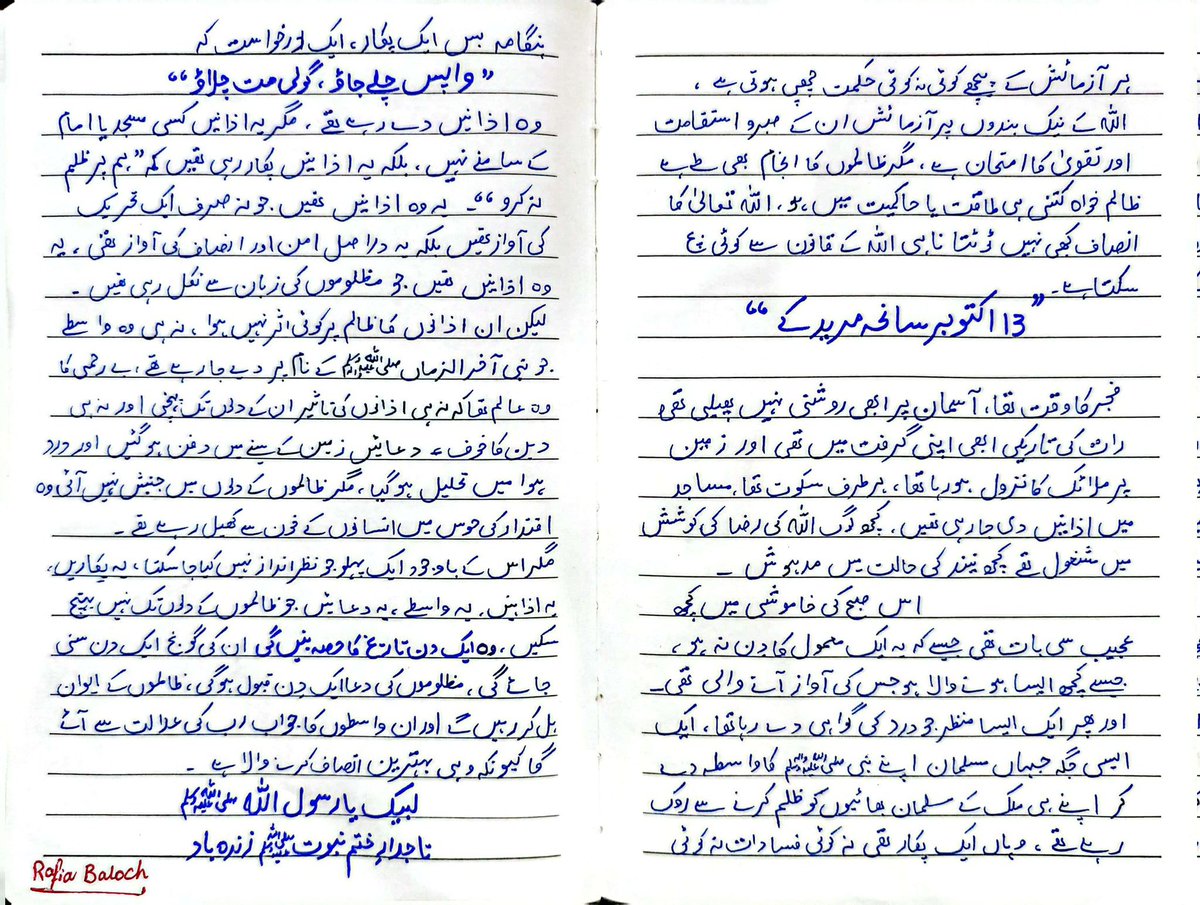 ہر آزمائش کے پیچھے کوئی نہ کوئی حکمت چھپی ہوتی ہے ،
اللہ کے نیک بندوں پر آزمائش ان کے صبر و استقامت
اور تقویٰ کا امتحان ہے ، مگر ظالموں کا انجام بھی طے ہے
ظالم خواہ کتنی ہی طاقت یا حاکمیت میں ہو ، اللہ تعالیٰ کا
انصاف کبھی نہیں ٹوٹتا نا ہی اللہ کے قانون سے کوئی بچ
سکتا ہے ۔
”13 اکتوبر سانحہ مریدکے“
فجر کا وقت تھا، آسمان پر ابھی روشنی نہیں پھیلی تھی
رات کی تاریکی ابھی اپنی گرفت میں تھی اور زمین
پر ملائک کا نزول ہو رہا تھا ، ہر طرف سکوت تھا، مساجد
میں اذانیں دی جا رہی تھیں ، کچھ لوگ اللہ کی رضا کی کوشش
میں مشغول تھے کچھ نیند کی حالت میں مدہوش ۔
اس صبح کی خاموشی میں کچھ
عجیب سی بات تھی جیسے کہ یہ ایک معمول کا دن نہ ہو ،
جیسے کچھ ایسا ہونے والا ہو جس کی آواز آنے والی تھی ۔
اور پھر ایک ایسا منظر جو درد کی گواہی دے رہا تھا ، ایک
ایسی جگہ جہاں مسلمان اپنے نبی ﷺ کا واسطہ دے
کر اپنے ہی ملک کے مسلمان بھائیوں کو ظلم کرنے سے روک
رہے تھے ، وہاں ایک پکار تھی نہ کوئی فسادات نہ کوئی
ہنگامہ بس ایک پکار ، ایک درخواست کہ
”واپس چلے جاؤ ، گولی مت چلاؤ“
وہ اذانیں دے رہے تھے ، مگر یہ اذانیں کسی مسجد یا امام
کے سامنے نہیں ، بلکہ یہ اذانیں پکار رہی تھیں کہ ”ہم پر ظلم
نہ کرو“ ۔ یہ وہ اذانیں تھیں جو نہ صرف ایک تحریک
کی آواز تھیں بلکہ یہ دراصل امن اور انصاف کی آواز تھی ، یہ
وہ اذانیں تھیں جو مظلوموں کی زبان سے نکل رہی تھیں ۔
لیکن ان اذانوں کا ظالم پر کوئی اثر نہیں ہوا ، نہ ہی وہ واسطے
جو نبی آخر الزماں ﷺ کے نام پر دیے جا رہے تھے ، بے رحمی کا
وہ عالم تھا کہ نہ ہی اذانوں کی تاثیر ان کے دلوں تک پہنچی اور نہ ہی
دین کا خوف ، دعائیں زمین کے سینے میں دفن ہو گئیں اور درد
ہوا میں تحلیل ہو گیا ، مگر ظالموں کے دلوں میں جنبش نہیں آئی وہ
اقتدار کی حوس میں انسانوں کے خون سے کھیل رہے تھے ۔
مگر اس کے باوجود ایک پہلو جو نظر انداز نہیں کیا جا سکتا ، یہ پکاریں ،
یہ اذانیں ، یہ واسطے ، یہ دعائیں جو ظالموں کے دلوں تک نہیں پہنچ
سکیں ، وہ ایک دن تاریخ کا حصہ بنیں گی ان کی گونج ایک دن سنی
جائے گی ، مظلوموں کی دعا ایک دن قبول ہوگی ، ظالموں کے ایوان
ہل کر رہیں گے اور ان واسطوں کا جواب رب کی عدالت سے آئے
گا کیونکہ وہی بہترین انصاف کرنے والا ہے ۔
لبیک یا رسول اللہ ﷺ
تاجدارِ ختم نبوت ﷺ زندہ باد
Rafia Baloch